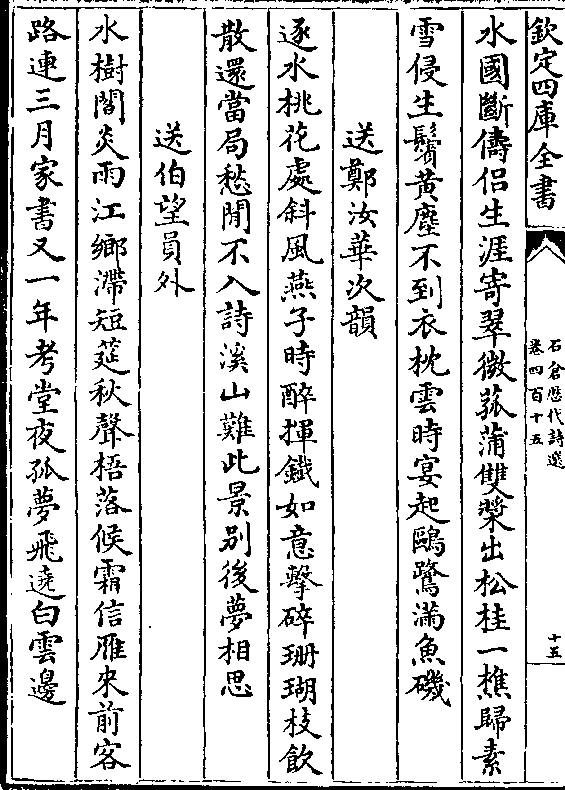 欽定四庫全書
石倉歷代詩選
卷四百十五
十五
水國斷儔侶生涯寄翠微菰蒲雙槳出松桂一樵歸素
雪侵生鬢黄塵不到衣枕雲時宴起鷗鷺滿魚磯
送鄭汝華次韻
逐水桃花處斜風燕子時醉揮鐵如意擊碎珊瑚枝飲
散還當局愁閒不入詩溪山難此景别後夢相思
送伯望員外
水樹閣炎雨江鄉滯短筵秋聲梧落候霜信雁來前客
路連三月家書又一年考堂夜孤夢飛遶白雲邊